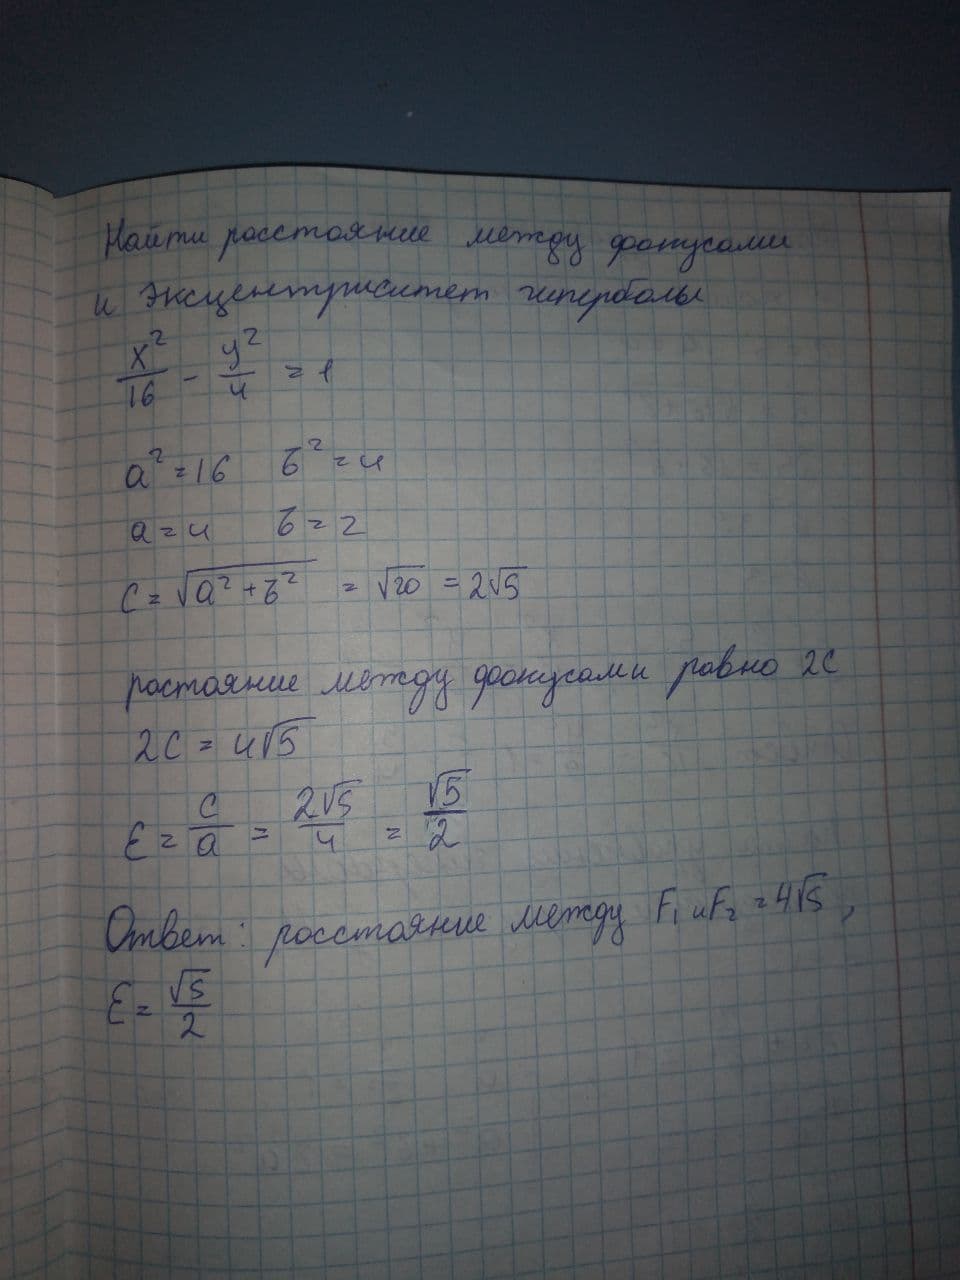 Найти расстояние между фокусами
и эксцентриситет гиперболы
x²/16 - y²/4 = 1
a² = 16 б² = 4
a = 4 б = 2
c = √(a² + б²) = √20 = 2√5
растояние между фокусами равно 2c
2c = 4√5
ε = c/a = 2√5/4 = √5/2
Ответ: расстояние между F₁ и F₂ = 4√5,
ε = √5/2